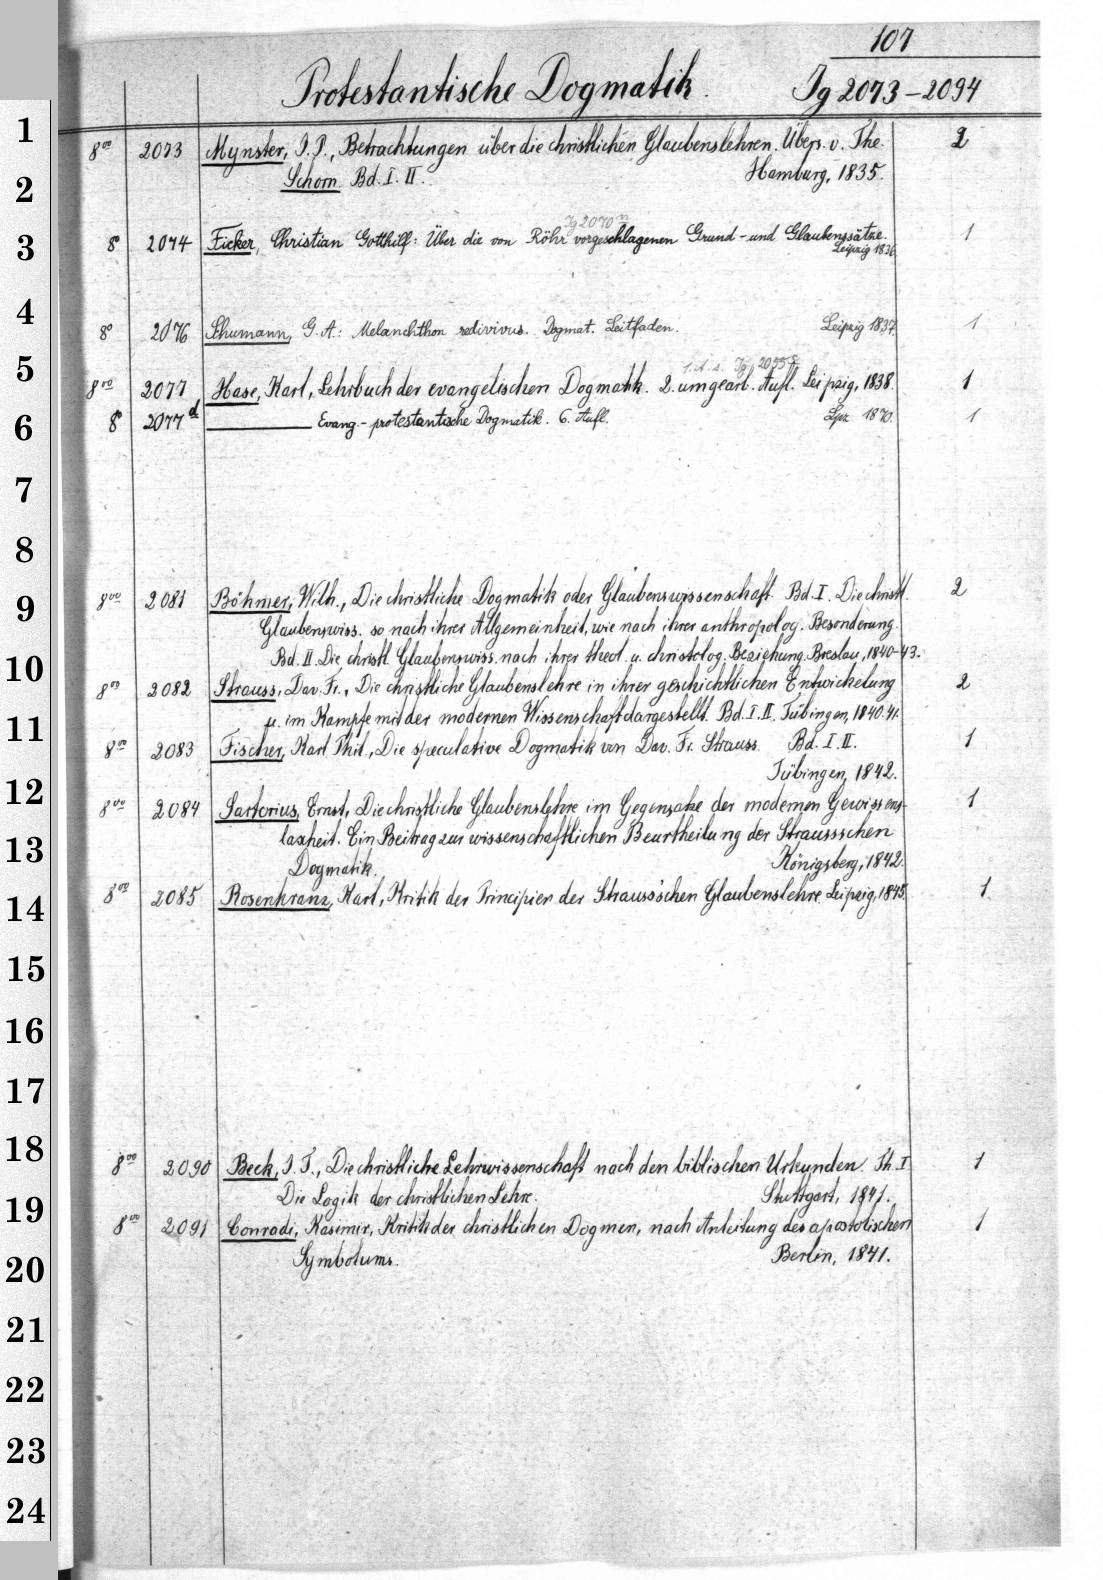 107
Protestantische Dogmatik. Ig 2073-2094
1
8vo 2073 Mynster, J. P., Betrachtungen über die christlichen Glaubenslehren. Übers. v. The. 2
2
Schorn. Bd. I. II. Hamburg, 1835.
Ig 2070 m
3
8° 2074 Ficker, Christian Gotthilf: Über die von Röhr vorgeschlagenen Grund- und Glaubenssätze. 1
Leipzig 1836
4
8° 2076 Schumann, G. A.: Melanchthon redivivus. Dogmat. Leitfaden. Leipzig 1837. 1
5
8vo 2077 Hase, Karl, Lehrbuch der evangelischen Dogmatik. 2. umgearb. Aufl. Leipzig, 1838. 1
6
8° 2077d ——— Evang.-protestantische Dogmatik. 6. Aufl. Lpz. 1870. 1
7
8
9
8vo 2081 Böhmer, Wilh., Die christliche Dogmatik oder Glaubenswissenschaft. Bd. I. Die christl. 2
Glaubenswiss. so nach ihrer Allgemeinheit, wie nach ihrer anthropolog. Besonderung.
10
Bd. II. Die christl. Glaubenswiss. nach ihrer theol. u. christolog. Beziehung. Breslau, 1840-43.
8vo 2082 Strauss, Dav. Fr., Die christliche Glaubenslehre in ihrer geschichtlichen Entwickelung 2
11
u. im Kampfe mit der modernen Wissenschaft dargestellt. Bd. I. II. Tübingen, 1840-41.
8vo 2083 Fischer, Karl Phil., Die speculative Dogmatik von Dav. Fr. Strauss. Bd. I. II. 1
Tübingen, 1842.
12
8vo 2084 Sartorius, Ernst, Die christliche Glaubenslehre im Gegensatze der modernen Gewissens- 1
13
laxheit. Ein Beitrag zur wissenschaftlichen Beurtheilung der Straussschen
Dogmatik. Königsberg, 1842.
14
8vo 2085 Rosenkranz, Karl, Kritik der Principien der Strauss'schen Glaubenslehre. Leipzig, 1845. 1
15
16
17
18
8vo 2090 Beck, J. T., Die christliche Lehrwissenschaft nach den biblischen Urkunden. Th. I 1
19
Die Logik der christlichen Lehre. Stuttgart, 1841.
8vo 2091 Conradi, Kasimir, Kritik der christlichen Dogmen, nach Anleitung des apostolischen 1
20
Symbolums. Berlin, 1841.
21
22
23
24